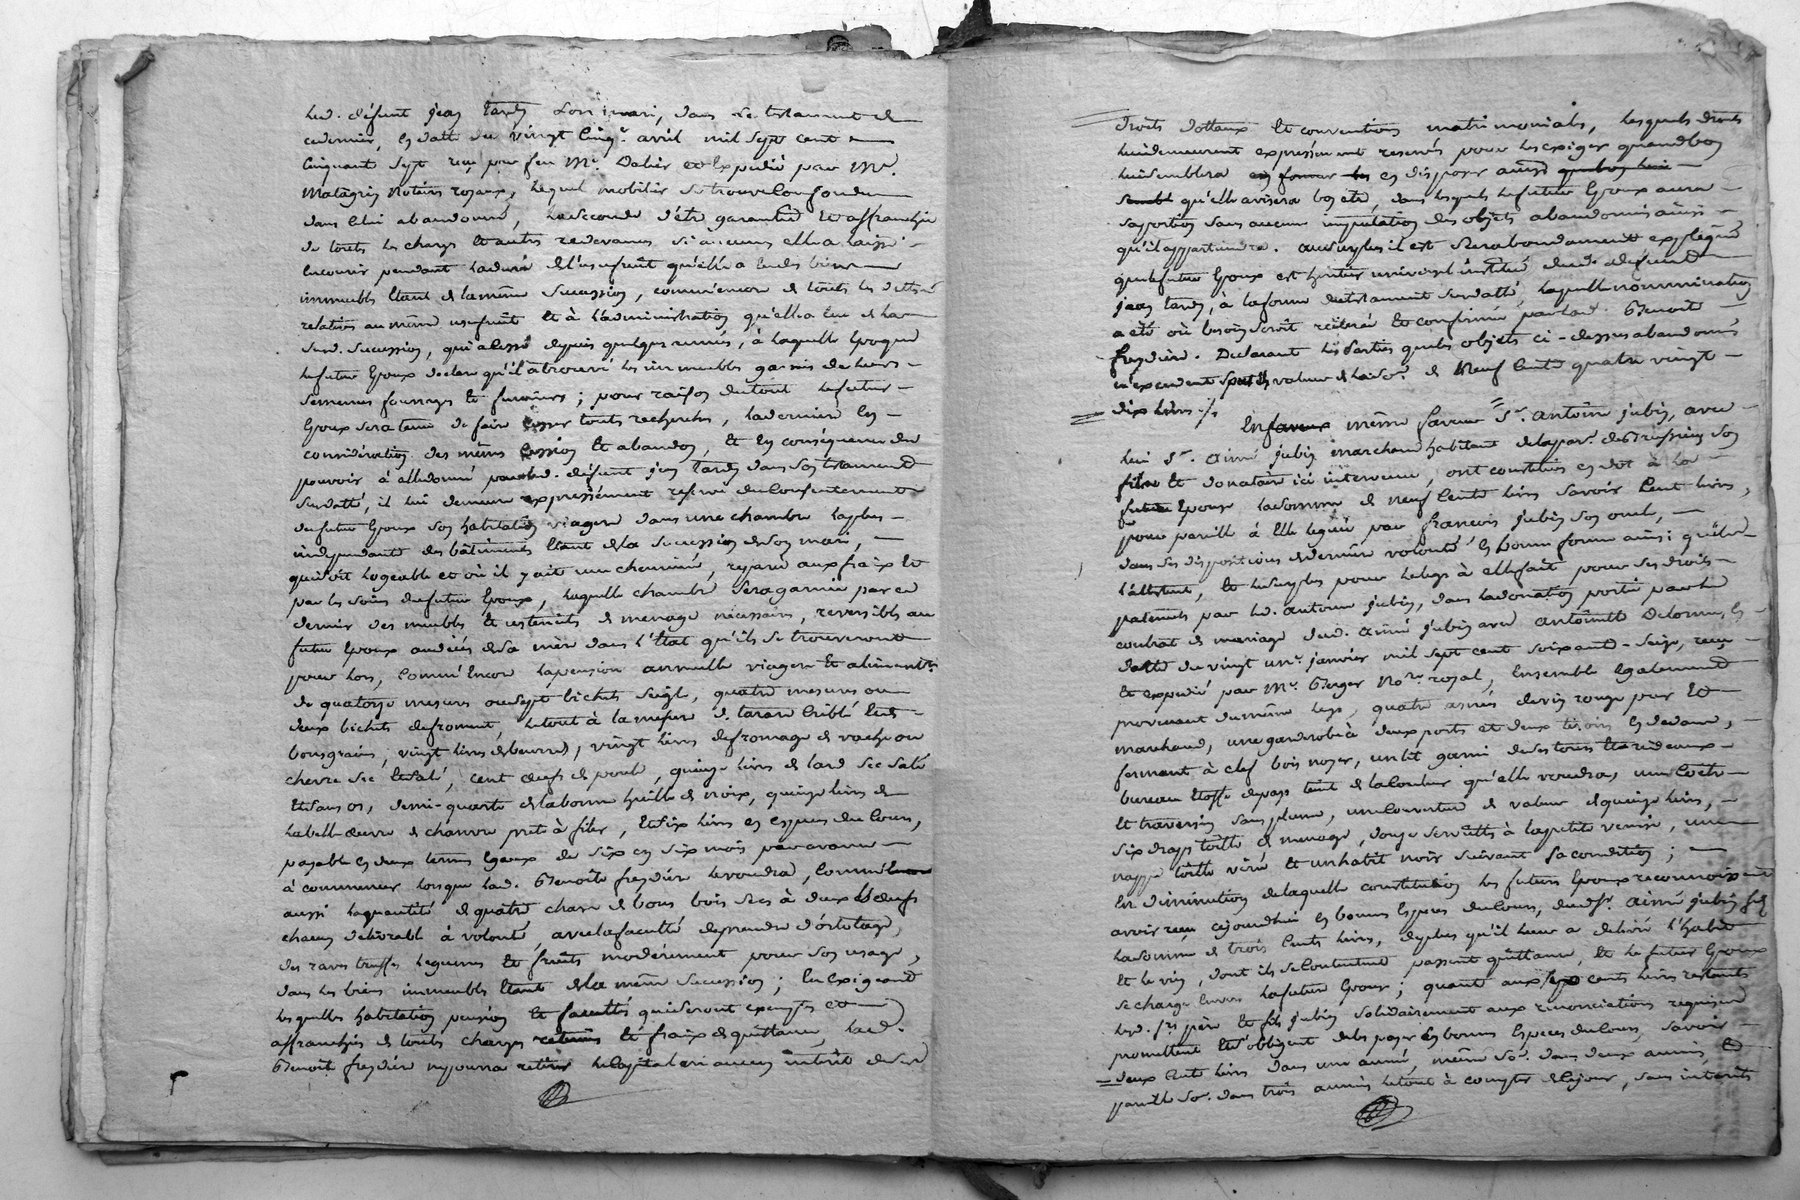 led. défunt jean tardy son mari, dans le testament de
cedernier, en datte du vingt cinq.e avril mil sept cent
cinquant sept reçu par feu M.e Dalier et expedié par M.e
Matagrin Notaires royaux, lequel mobilier se trouve confondu
dans celui abandonné, la seconde d'être garantie et affranchie
de touts les charges et autres redevances si aucunes elle a laissé
encourir pendant la durée de l'usufruit qu'elle a eu des biens
immeubles étant de la même succession, comm'encore de touts les dettes
relatives au même usufruit et à l'administration qu'elle a eu de la
sud. succession, qui a cessé depuis quelques années, à laquelle époque
le futur époux declare qu'il a trouvé les immeubles garnis de leurs
semences fourrages et fumiers; pour raison du tout le futur
époux sera tenu de faire cesser touts recherches, la derniere en
considération des mêmes cession et abandon, et en conséquence du
pouvoir à elle donné par led. défunt jean tardy dans son testament
susdatté, il lui demeure expressément reservé du consentement
du futur époux son habitation viagere dans une chambre la plus
indépendante des bâtiments étant de la succession de son mari,
qui soit logeable et où il y ait une cheminée, reparée aux fraix et
par les soins du futur époux, laquelle chambre sera garnie par ce
dernier des meubles et ustenciles de menage nécessaires, reversibles au
futur époux au décès de sa mère dans l'état qu'ils se trouveront
pour lors, comm'encor la pension annuelle viagere et alimentre
de quatorze mesures ou sept bichets seigle, quatre mesures ou
deux bichets de froment, le tout à la mesure de tarare criblé
bons grains, vingt livres de beurre, vingt livres de fromage de vache ou
chevre sec et salé, cent œufs de poule, quinze livres de lard sec salé
et sans os, demi-quarte de la bonne huille de noix, quinze livres de
la belle œuvre de chanvre prete à filer, et six livres en especes du cours,
payable en deux termes égaux de six en six mois par avance
à commencer lorsque lad. Benoite freydier le voudra, comm
aussi la quantité de quatre chars de bons bois secs à deux bœufs
chacun délivrable à volonté, avec la faculté de prendre d'ortolage,
des raves truffes legumes et fruits modérement pour son usage,
dans les biens immeubles étant de la même succession; en exigeant
lesquelles habitation pension et facultés qui seront exemptes et
affranchies de touts charges et fraix de quittance, lad.
Benoite freydier ne pourra retirer le capital ni aucun intérêt de ses
droits dottaux et conventions matrimoniales, lesquels droits
lui demeurent expressement reservés pour les exiger quand bon
lui semblera en disposer ainsi
qu'elle avisera bon être, dans lesquels le futur époux aura
sa portion sans aucune imputation des objets abandonnés ainsi
qu'il appartiendra. au surplus il est surabondament expliqué
que le futur époux est heritier universel institué dud. défunt
jean tardy, à la forme du testament susdatté, laquelle nommination
a été où besoin seroit réiterée et confirmée par lad. Benoite
freydier. Declarant les parties que les objets ci-dessus abandonnés
n'excedent pas la valeur de la so.e de Neuf cents quatre vingt
dix livres ./.
En même faveur s.r antoine jubin, avec
lui s.r aimé jubin marchand habitant de la par. de son
fils et donataire ici intervenu, ont constitués en dot à la
future épouse la somme de neuf cents livres savoir cent livres,
pour pareille à elle leguée par françois jubin son oncle,
dans ses dispositions de derniere volonté en bonne forme ainsi qu'elle
l'attestent, et le surplus pour le legs à elle fait pour ses droits
paternels par led. antoine jubin, dans la donation portée par le
contrat de mariage dud. aimé jubin avec antoinette Delorme, en
datte du vingt un.e janvier mil sept cent soixante-seize, reçu
et expedié par M.e Berger No.re royal, ensemble également
provenant du même legs, quatre asnées de vin rouge pur et
marchand, une garderobe à deux portes et deux tiroirs en dedans,
fermant à clef bois noyer, un lit garni de ses tours et rideaux
bureau étoffe de pays teint de la couleur qu'elle voudra, une coëtre
et traversin sans plume, une couverture de valeur de quinze livres,
six draps toille de menage, douze serviettes à la petite venise, une
nappe toille et un habit noir suivant sa condition;
En diminution de laquelle constitution les futurs époux reconnoissent
avoir reçu cejourdhui en bonnes especes du cours, dud. s.r aimé jubin fils
la somme de trois cents livres, de plus qu'il leur a delivré l'habit
et le vin, dont ils se contentent passent quittance, et le futur époux
se charge envers la future épouse; quant aux six cents livres restants
lesd. s.rs père et fils jubin solidairement aux renonciations requises
promettent et s'obligent de les payer en bonnes especes du cours, savoir
deux cents livres dans une année, même so.e dans deux années, et
pareille so.e dans trois années le tout à compter de ce jour, sans intérêts